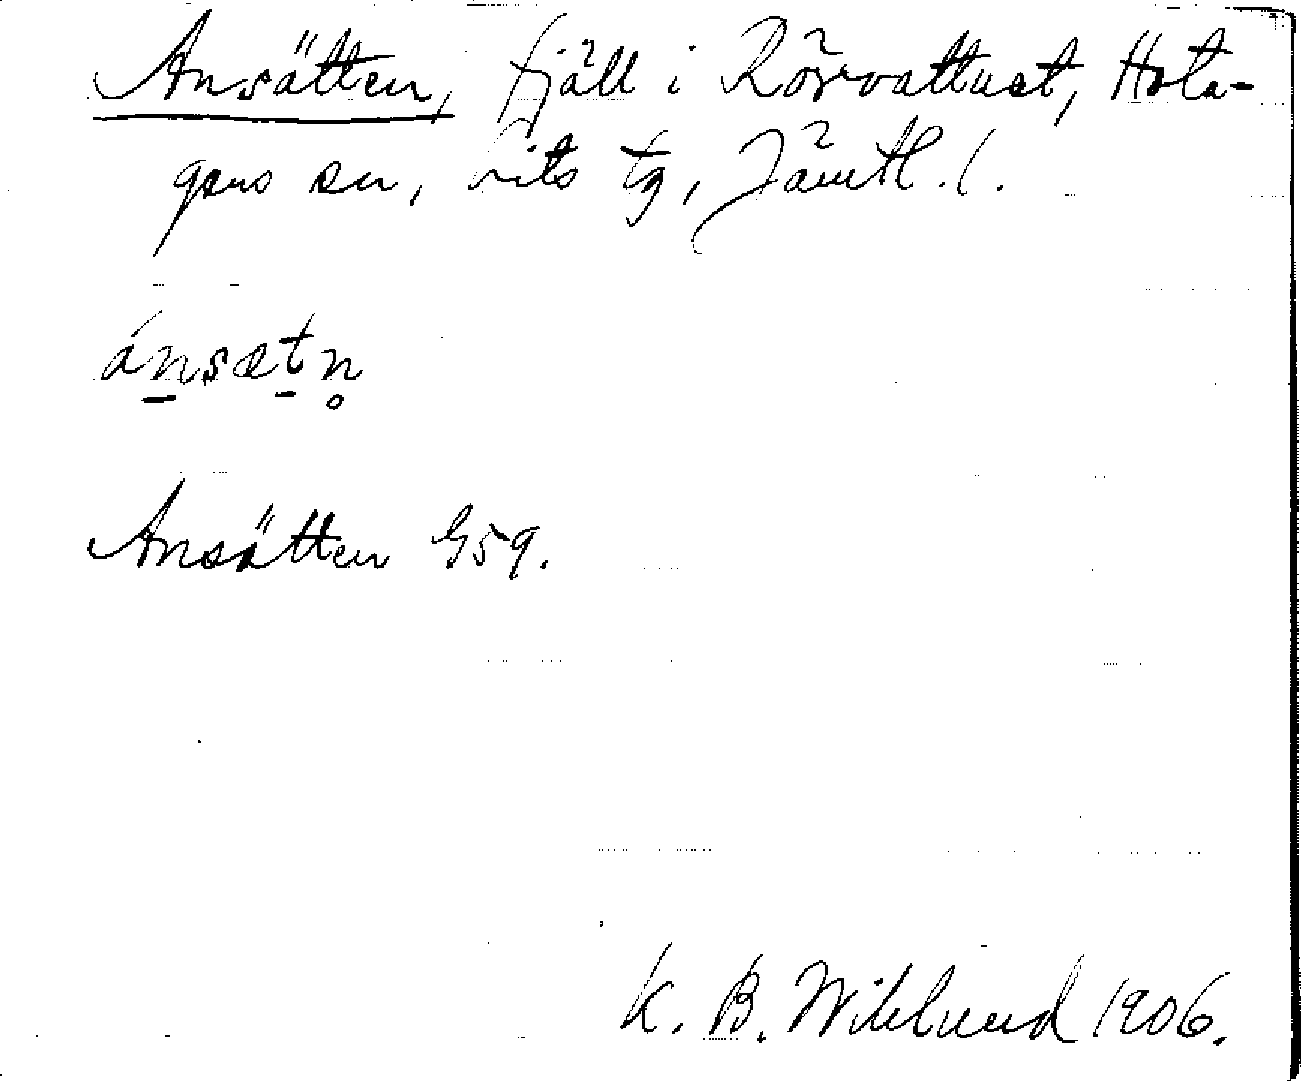 Ansätten, fjäll i Rörvattnet, Hota-
gens sn, Lits tg, Jämtl. l.
ánsætn̥
Ansätten G59.
K. B. Wiklund 1906.